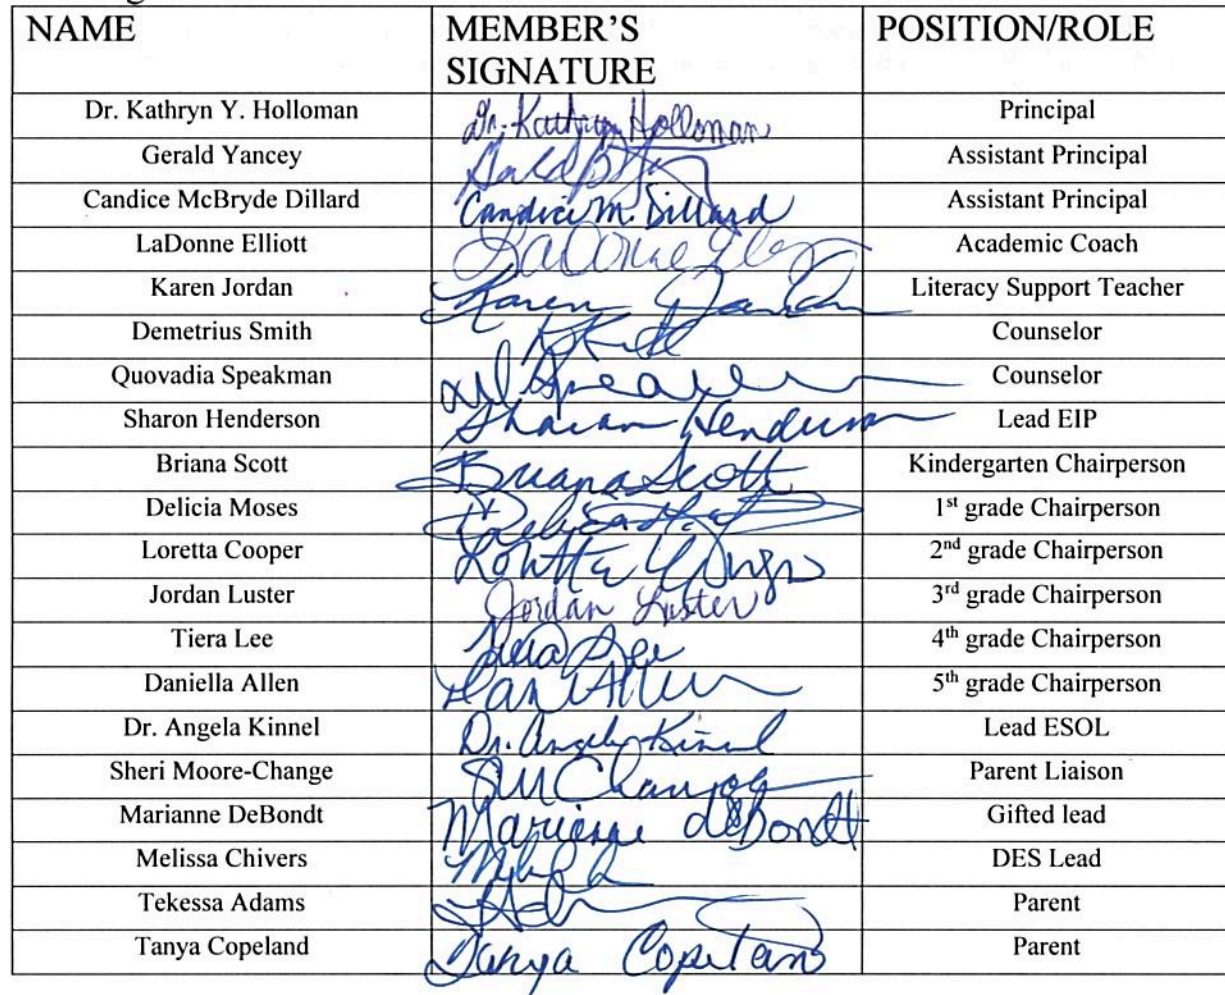 NAME MEMBER'S SIGNATURE POSITION/ROLE
Dr. Kathryn Y. Holloman Dr. Kathryn Holloman Principal
Gerald Yancey Assistant Principal
Candice McBryde Dillard Candice M. Dillard Assistant Principal
LaDonne Elliott Academic Coach
Karen Jordan Karen Jordan Literacy Support Teacher
Demetrius Smith Counselor
Quovadia Speakman Counselor
Sharon Henderson Sharon Henderson Lead EIP
Briana Scott Briana Scott Kindergarten Chairperson
Delicia Moses 1st grade Chairperson
Loretta Cooper Loretta 2nd grade Chairperson
Jordan Luster Jordan Luster 3rd grade Chairperson
Tiera Lee Tiera Lee 4th grade Chairperson
Daniella Allen 5th grade Chairperson
Dr. Angela Kinnel Dr. Angela Kinnel Lead ESOL
Sheri Moore-Change SMChange Parent Liaison
Marianne DeBondt Marianne deBondt Gifted lead
Melissa Chivers DES Lead
Tekessa Adams Parent
Tanya Copeland Tanya Copeland Parent